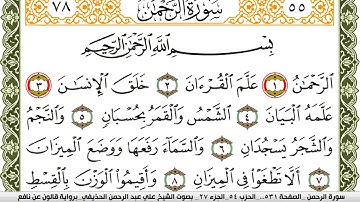 ٧٨ سُورَةُ الرَّحْمَٰن ٥٥
بِسْمِ اللَّهِ الرَّحْمَٰنِ الرَّحِيمِ
الرَّحْمَٰنُ ١ عَلَّمَ الْقُرْءَانَ ٢ خَلَقَ الْإِنسَٰنَ ٣
عَلَّمَهُ الْبَيَانَ ٤ الشَّمْسُ وَالْقَمَرُ بِحُسْبَانٍ ٥ وَالنَّجْمُ
وَالشَّجَرُ يَسْجُدَانِ ٦ وَالسَّمَآءَ رَفَعَهَا وَوَضَعَ الْمِيزَانَ
٧ أَلَّا تَطْغَوْا فِي الْمِيزَانِ ٨ وَأَقِيمُوا الْوَزْنَ بِالْقِسْطِ
سورة الرحمن _ الصفحة ٥٣١ .. الحزب ٥٤ _ الجزء ٢٧ .. بصوت الشيخ علي عبد الرحمن الحذيفي _ برواية قالون عن نافع